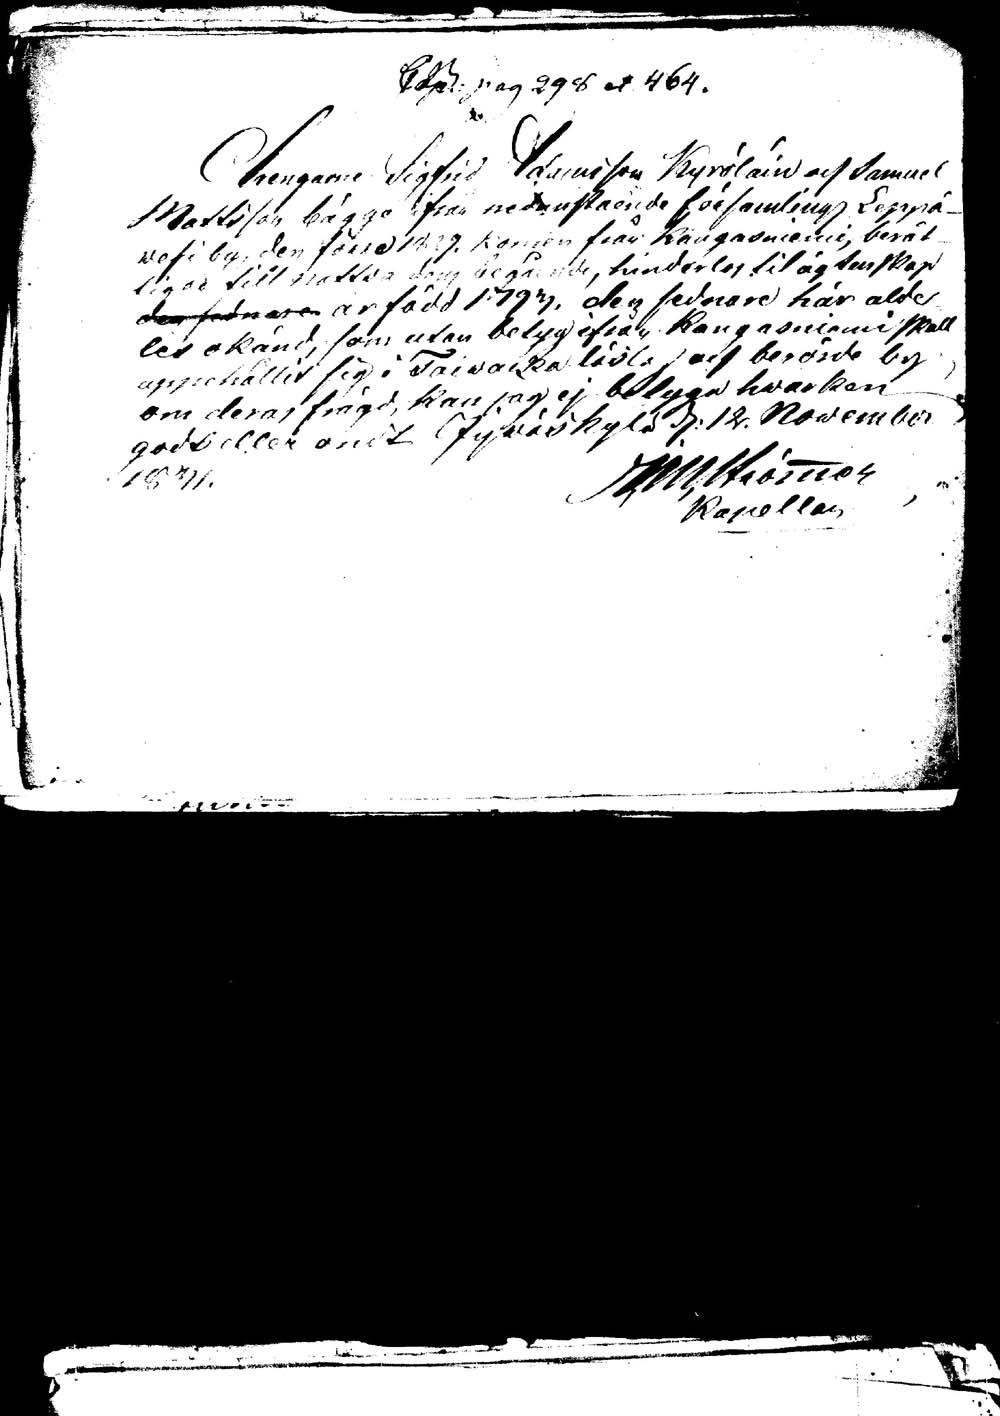 pag 298 et 464.
Drengarne Sigfrid Adamsson Kyröläin och Samuel
Mattsson bägge ifrån nedanstående församlings Leppä-
vesi by, den förre 1829. kommen från Kangasniemi, berät-
tigad till nattvardens begående, hinderlös til ägtenskap
den sednare är född 1797, den sednare här alde-
les okänd, som utan betyg ifrån Kangasniemi skall
uppehållit sig i Taiwalka och berörde by,
om deras frägd, kan jag ej betyga hwarken
godt eller ondt Jyväskylä d: 12. November
1831.
Kapellan